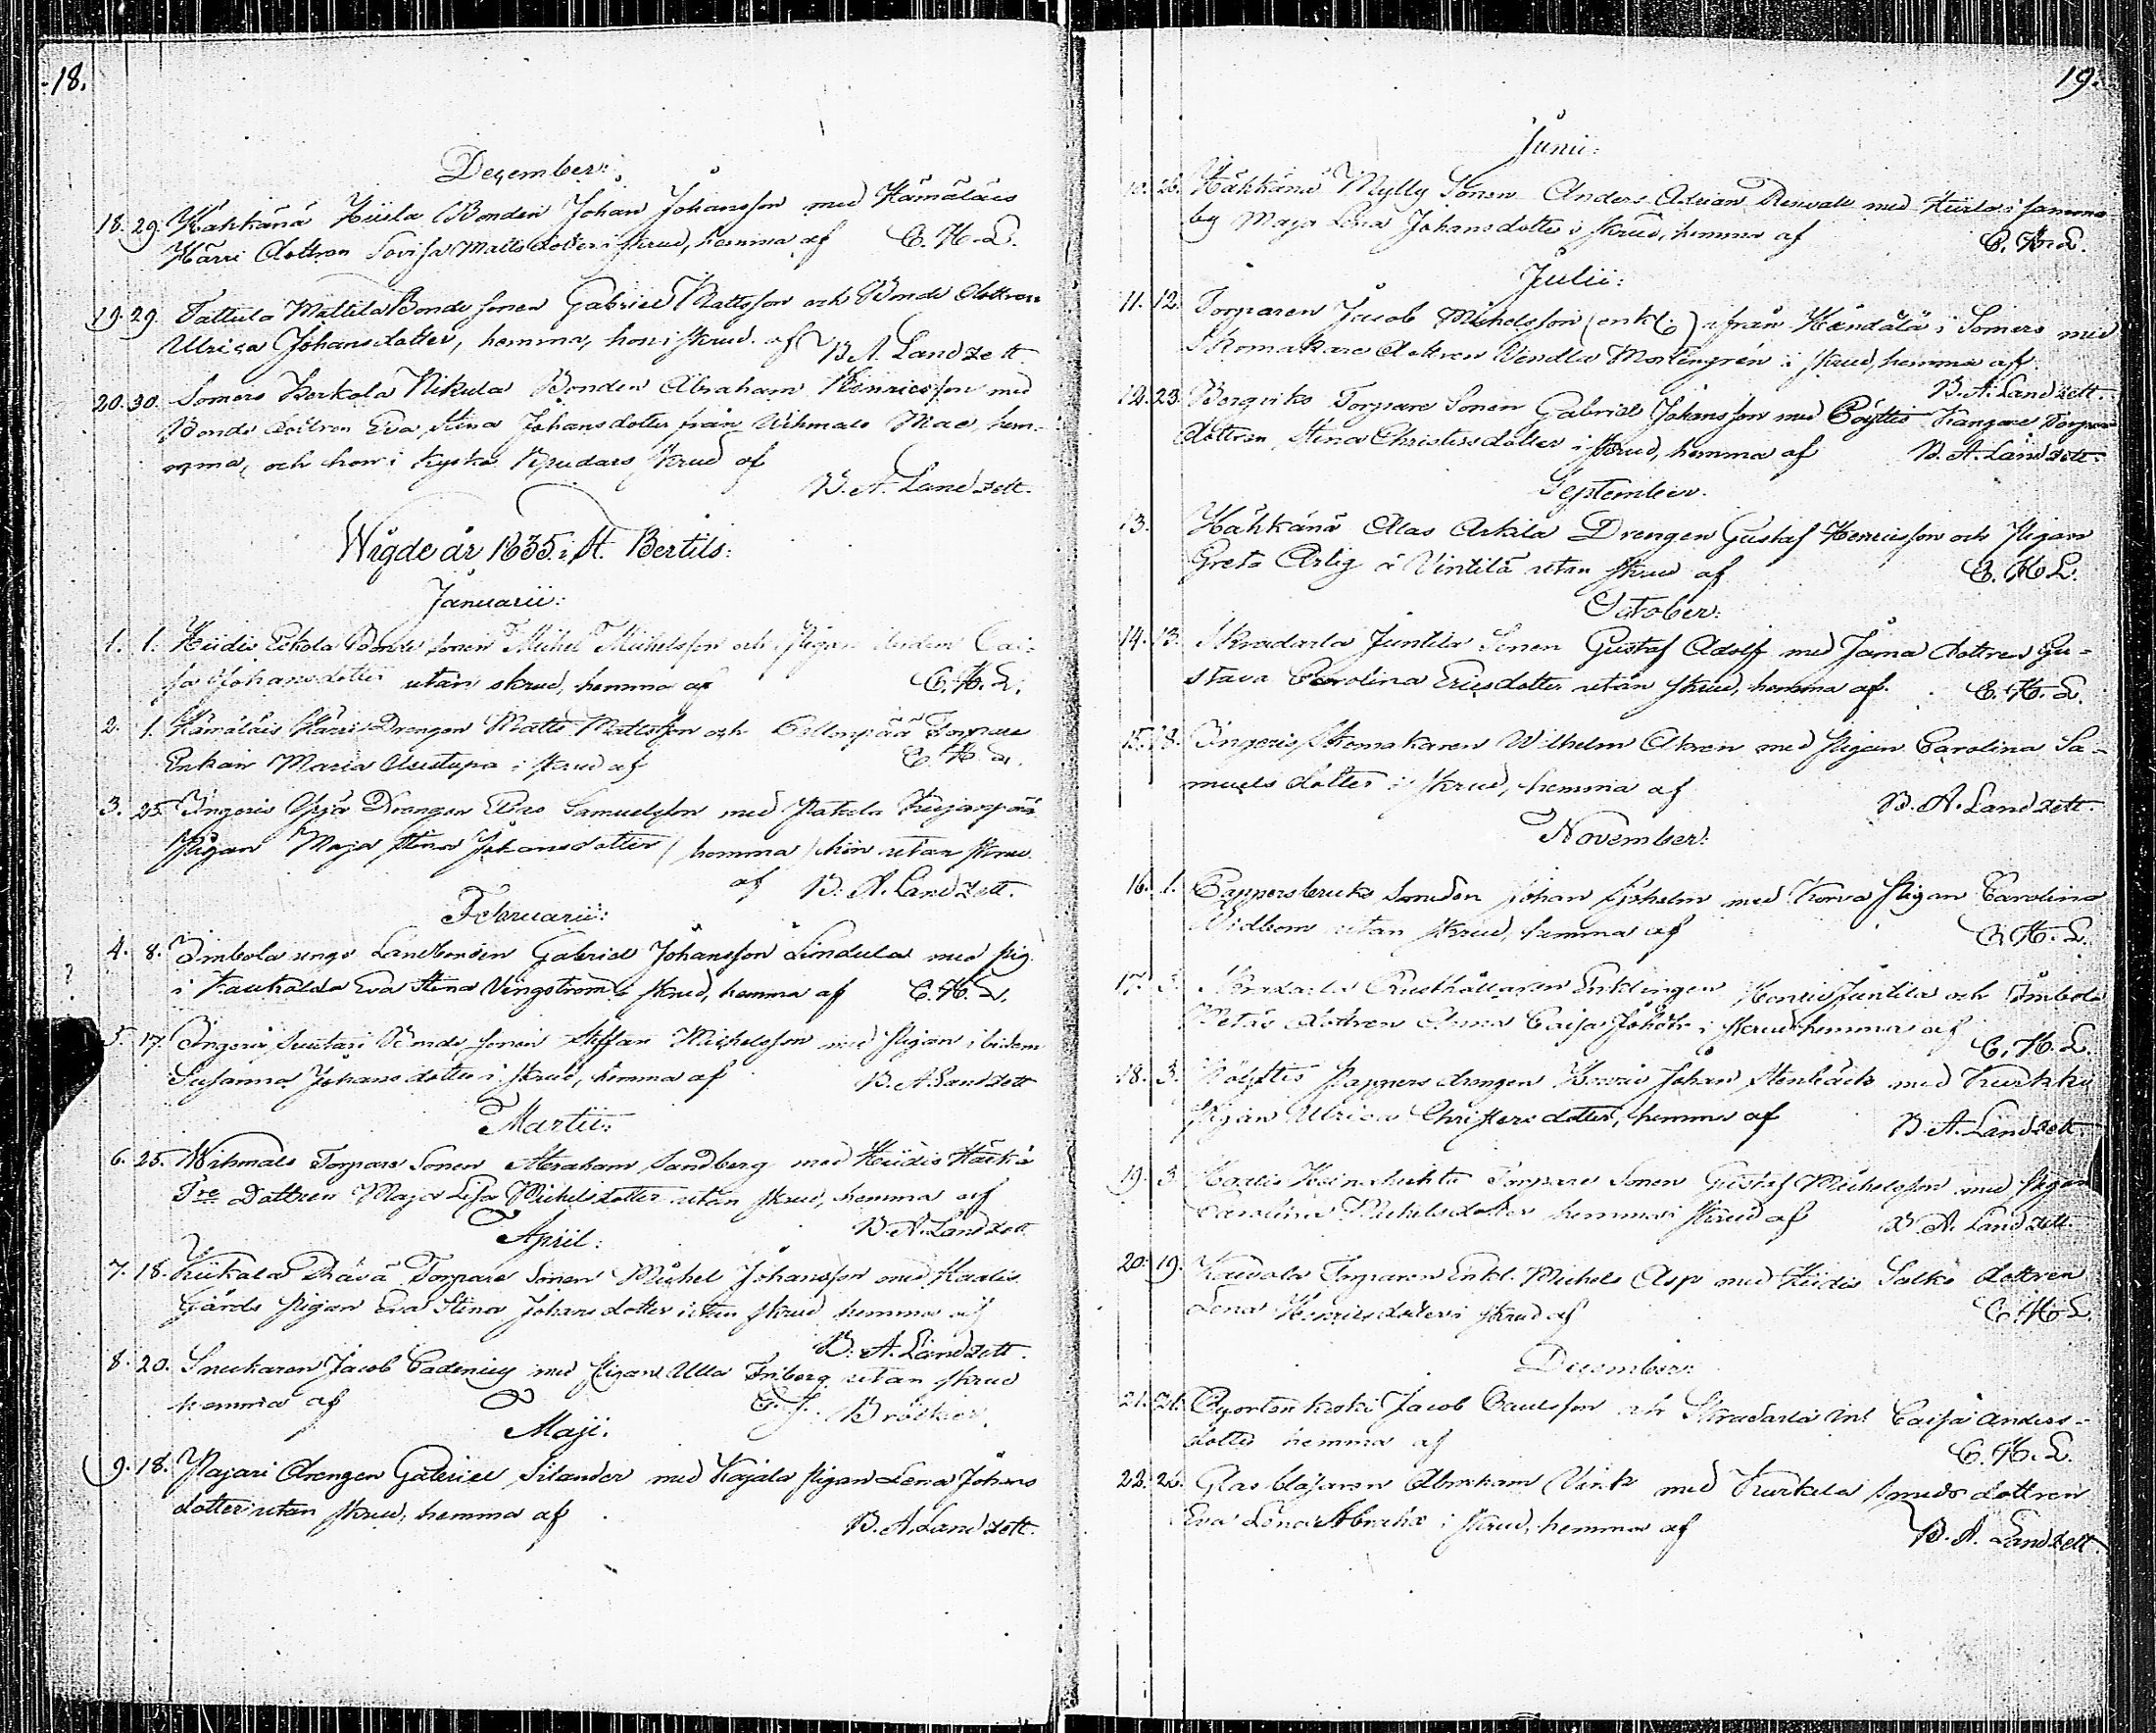 18.
December:
18. 29. Kähkänä Hiisla Bonden Johan Johansson med Hämäläis
Härri dottren Lovisa Matts dotter i skrud, hemma af C. H. L.
19. 29. Tattula Mattila Bonde sonen Gabriel Mattsson och Bonde dottren
Ulrica Johansdotter, hemma, hon i skrud af B. A. Landzett
20. 30. Somero Kerkola Nikula Bonden Abraham Henricsson med
Bonde dottren Eva Stina Johansdotter från Wihmalo Mae, hem-
ma, och hon i kyrko Brudars skrud af
B. A. Landzett.
Wigde år 1835. i St. Bertils:
Januarii:
1. 1. Hiidis Eskola Bonde sonen Michel Michelsson och Pigan Cai-
sa Johansdotter utan skrud, hemma af C. H. L.
2. 1. Hämäläis Härri Drengen Matts Mattsson och Torpare
Enkan Maria i skrud af C. H. L.
3. 25. Ingeris Drengen Elias Samuelsson med Patola Kujanpää
Pigan Maja Stina Johansdotter (hemma) hon utan skrud
af B. A. Landzett.
Februarii:
4. 8. Immola unge Landbonden Gabriel Johansson Lindula med Pig.
i Kaukola Eva Stina Vingström i skrud, hemma af C. H. L.
5. 17. Ingeris Suutari Bonde sonen Steffan Michelsson med Pigan ibidem
Susanna Johans dotter i skrud, hemma af B. A. Landzett
Martii:
6. 25. Wihmalo Torpare Sonen Abraham Sandberg med Hiidis Härkä
Tre Dottren Maja Lisa Michelsdotter utan skrud, hemma af
B. A. Landzett
April:
7. 18. Kiikala Rävä Torpare Sonen Michel Johansson med Haalis
Gårds Pigan Eva Stina Johans dotter utan skrud hemma af
B. A. Landzett.
8. 20. Snickaren Jacob Cadenius med Pigan Ulla Friberg utan skrud
hemma af G. J. Bröcker.
Maji:
9. 18. Pajari drengen Gabriel Silander med Kajala Pigan Lena Johans
dotter utan skrud, hemma af
B. A. Landzett.
19.
Junii:
10. 26. Kähkänä Mylly Sonen Anders Adrian Renvall med Hiisla i samma
by Maja Lena Johansdotter i skrud, hemma af C. H. L.
Julii:
11. 12. Torparen Jacob Michelsson (enkl:) ifrån Häntälä i Somero med
Skomakare dottren Vendla Mortengrén i skrud, hemma af
B. A. Landzett.
12. 23. Torpare Sonen Gabriel Johansson med Pöytiö Kangare Torpare
dottren Stina Christersdotter i skrud, hemma af B. A. Landzett.
September.
13. Kähkänä Alas Arkila Drengen Gustaf Henricsson och Pigan
Greta Arlig å Vintilä utan skrud af C. H. L.
October:
14. 13. Skradarla Juntila Sonen Gustaf Adolf med Jåma dottren Gu-
stava Carolina Ericsdotter utan skrud, hemma af. C. H. L.
15. 18. Ingeris Skomakaren Wilhelm Akren med Pigan Carolina Sa-
muels dotter i skrud, hemma af
B. A. Landzett.
November:
16. 1. Pappersbruks Smeden Johan Sjöholm med Korva Pigan Carolina
Widbom utan skrud, hemma af C. H. L.
17. 3. Skradarla Rusthållaren Enklingen Henric Juntila och Immola
dottren Anna Caisa Joh:dtr i skrud hemma af
C. H. L.
18. 3. Pappers drengen Henric Johan Stenbäck med Kurkky
Pigan Ulrica Christers dotter, hemma af B. A. Landzett.
19. 3. Haalis Torpare Sonen Gustaf Michelsson med Pigan
Carolina Michelsdotter hemma i skrud af B. A. Landzett.
20. 19. Kaivola Torparen Enkl. Michels Asp med Hiidis Salko dottren
Lena Henricsdotter i skrud af C. H. L.
December:
21. 21. Jacob Paulsson och Skradarla Inh. Caisa Anders-
dotter hemma af C. H. L.
22. 26. Glas blåsaren Abraham Vink med Kurkela smeds dottren
Eva Lena Abrahs i skrud, hemma af
B. A. Landzett.